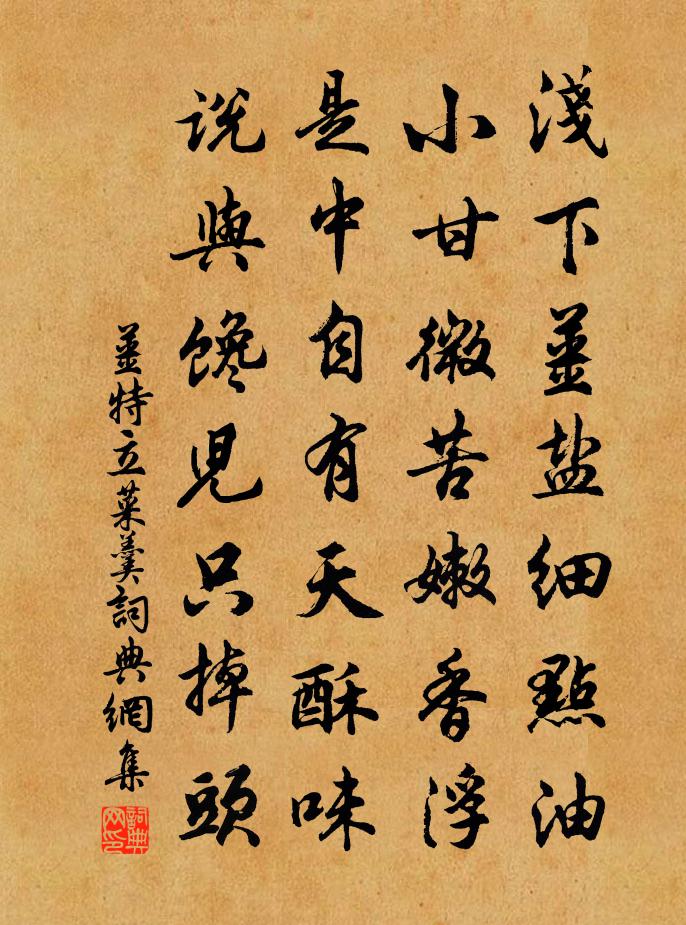 淺下薑盐细點油
小甘微苦嫩香浮
是中自有天酥味
说與馋児只掉頭
薑特立菜羹詞典網集
詞典网印